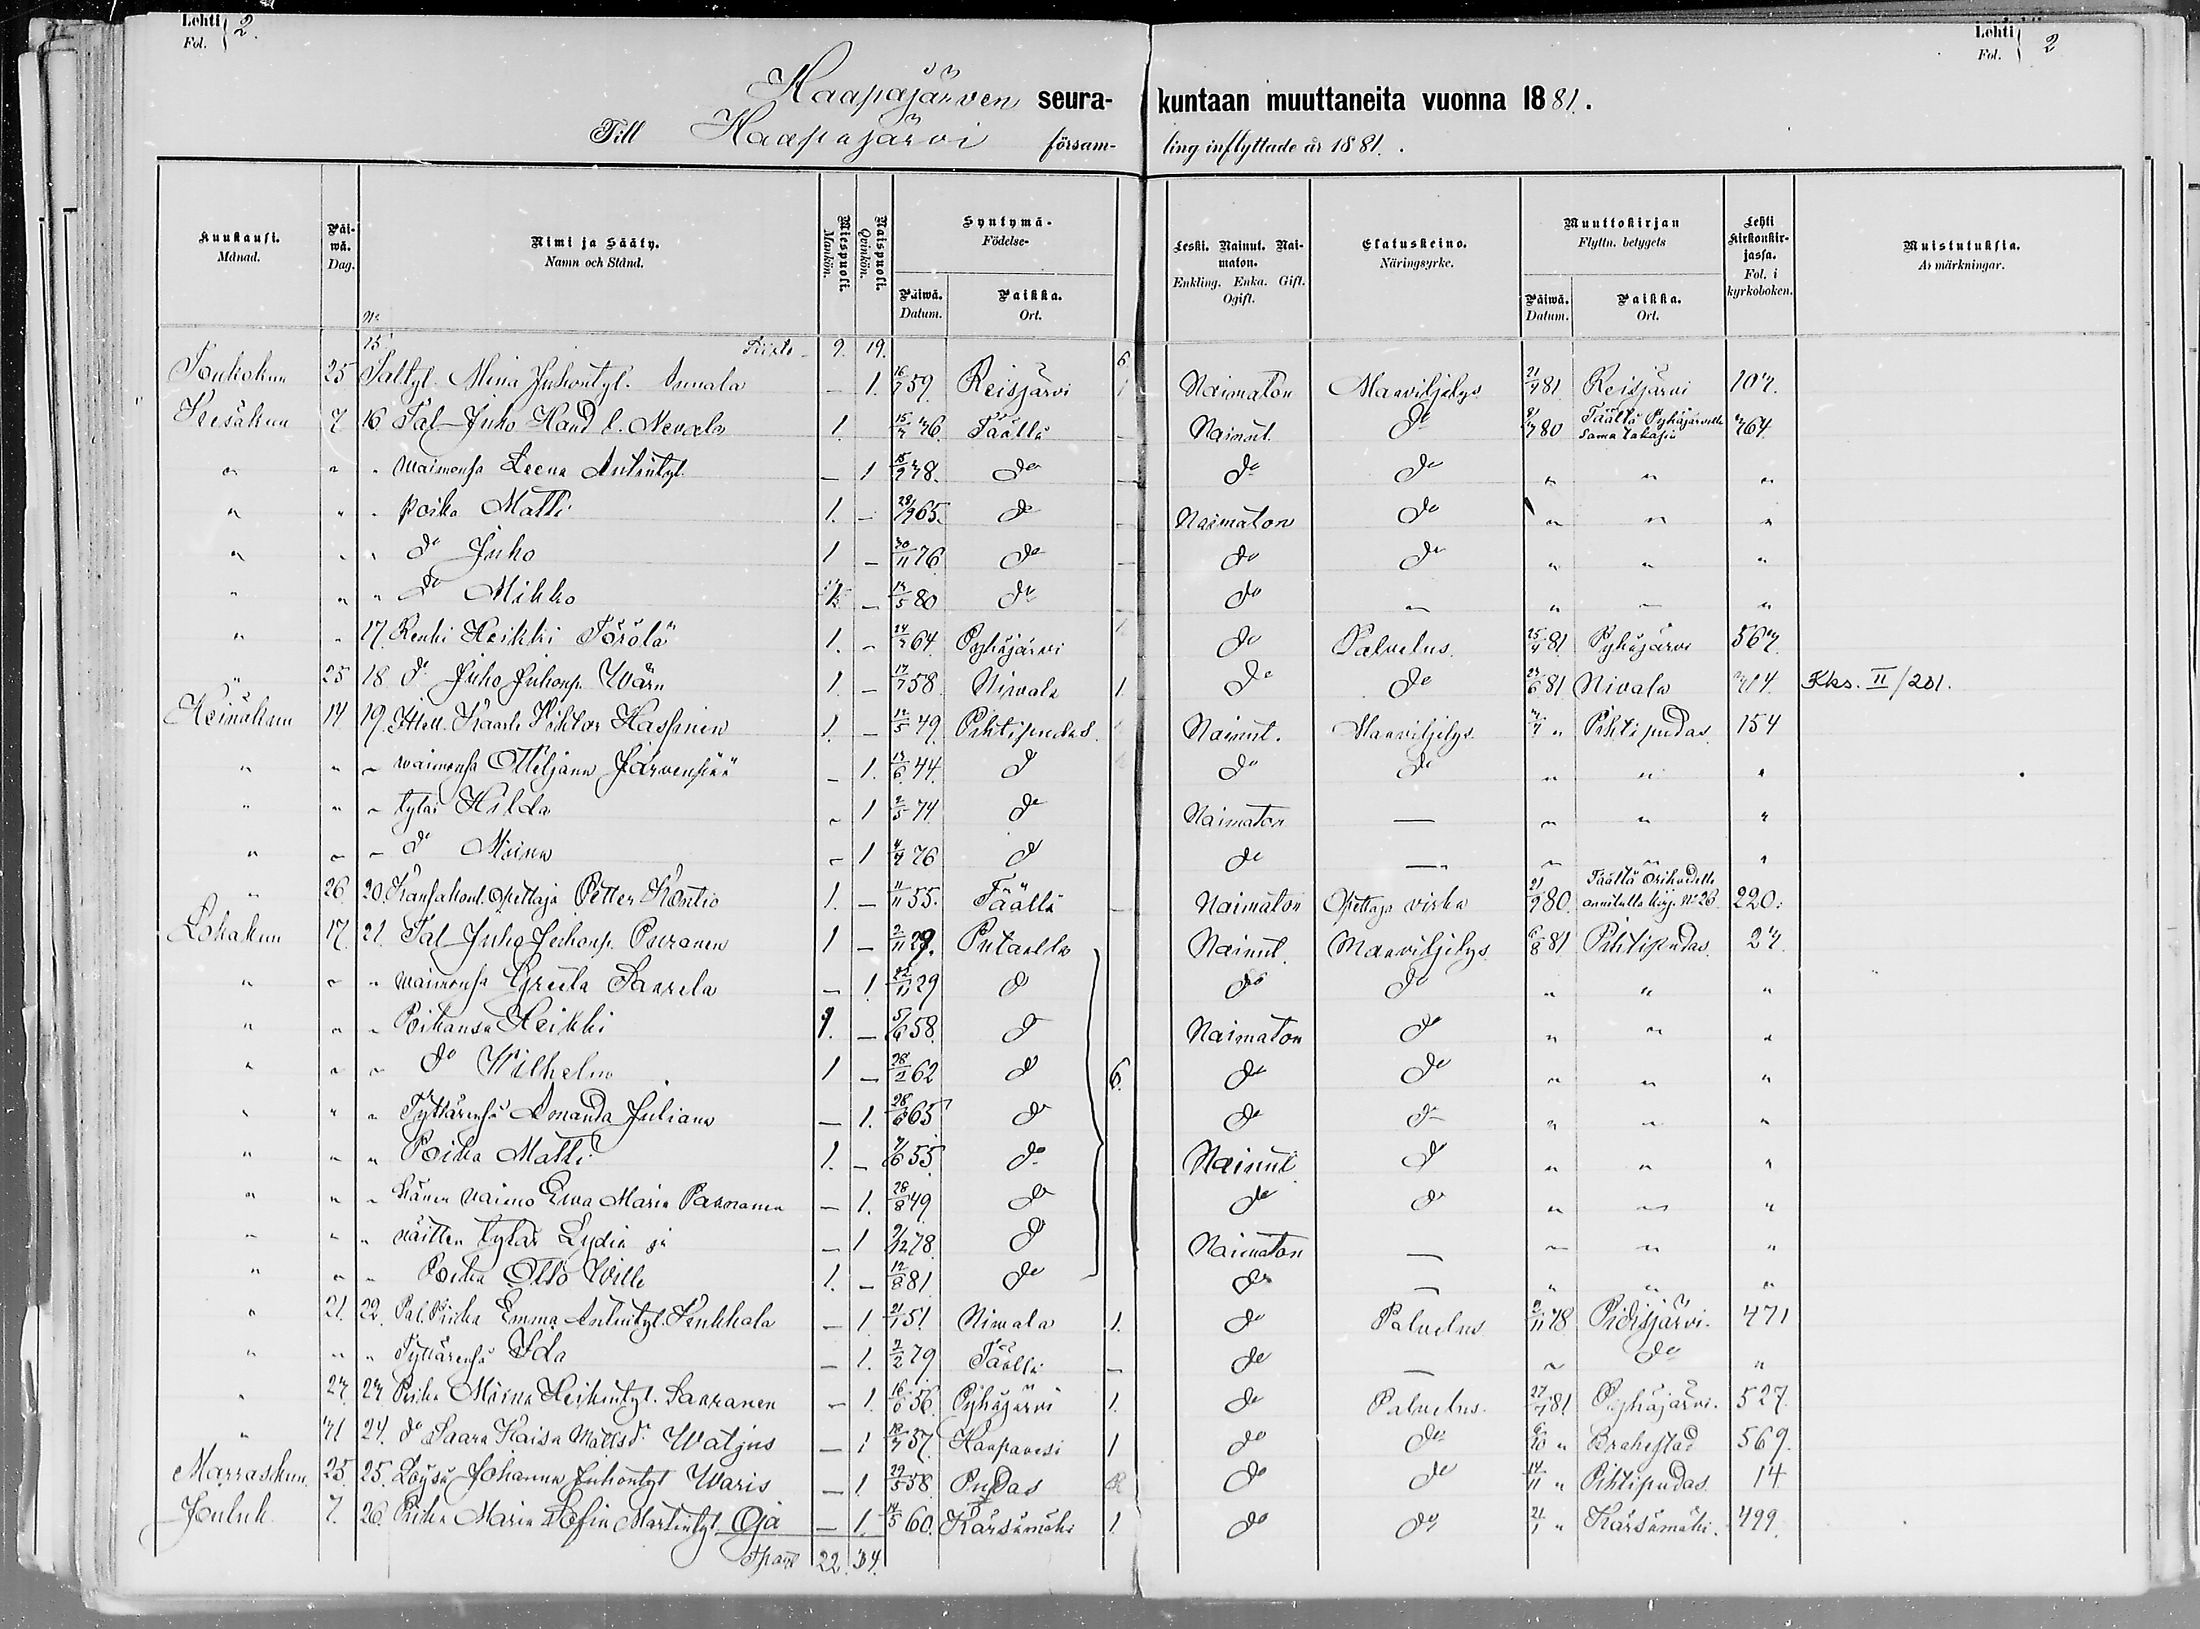 Lehti 2.
Fol.
Lehti 2
Fol.
Haapajärven seura- kuntaan muuttaneita vuonna 1881.
Till Haapajärvi försam- ling inflyttade år 1881.
Kuukausi. Månad. Päiwä. Dag. Nimi ja Sääty. Namn och Stånd. Miespuoli. Mankön. Naispuoli. Qvinkön. Syntymä- Födelse- Päiwä. Datum. Paikka. Ort. Leski. Nainut. Naimaton. Enkling. Enka. Gift. Ogift. Elatuskeino. Näringsyrke. Muuttokirjan Flyttn. betygets Päiwä. Datum. Paikka. Ort. Lehti Kirkonkirjassa. Fol. i kyrkoboken. Muistutuksia. Anmärkningar.
Siirto 9. 19. 6
Toukokuu 25 15 Taltyt. Miina Juhontyt. Annala — 1. 16/7 59. Reisjärvi 1 Naimaton Maanviljelys 21/4 81 Reisjärvi 107.
Kesäkuu 7 16 Tal. Juho Nevala 1. 15/7 36. Täällä — Nainut. do 80 Täältä Pyhäjärvelle sama takasin 364
" " " waimonsa Leena Antintyt — 1 15/2 38. do — do do " " "
" " " poika Matti 1. — 28/9 65. do — Naimaton do " " "
" " " do Juho 1 — 30/11 76 do — do do " " "
" " " do Mikko 1 — 17/5 80 do — do — " — "
" " 17. Renki Heikki Törölä 1. — 24/7 64 Pyhäjärvi 1. do Palvelus. 25/4 81 Pyhäjärvi 567.
" 25 18 do Juho Juhonp. Wärn 1. — 17/7 58. Nivala 1. do do 27/6 81 Nivala 314. Kks. II/201.
Heinäkuu 14 19. Kaarle Viktor Hasfinen 1. — 12/5 49. Pihtipudas Nainut. Maanviljelys " Pihtipudas. 154
" " " waimonsa Ottiljana Järvenpää — 1. 13/6 44. do do do " " "
" " " tytär Hilda — 1 2/5 74 do Naimaton — " " "
" " " do Miina — 1 4/4 76 do do — " " "
" 26 20. Kansakoul. Opettaja Petter Kontio 1. — 11/11 55. Täällä — Naimaton Opettaja virka 21/9 80. Täältä annetulla kirj. No 26. 220.
Lokakuu 17. 21. Tal. Juho Juhonp. Puranen 1 — 2/11 29. Nainut. Maanviljelys 6/8 81 Pihtipudas. 27.
" " " waimonsa Greeta Saarela — 1. 22/11 29 do do do " " "
" " " Poikansa Heikki 1. — 5/6 58. do Naimaton do " " "
" " " do Wilhelm 1 — 28/2 62 do 6. do do " " "
" " " Tyttärensä Amanda Juliana — 1. 28/6 65 do do do " " "
" " " Poika Matti 1. — 55. do Nainut do " " "
" " " hänen vaimo Ewa Maria Paananen — 1. 28/8 49 do do do " " "
" " " näitten tytär Lydia ja — 1 2/12 78. do Naimaton — " " "
" " " Poika Otto Wille 1. — 12/8 81 do do — " " "
" 21. 22. Pal. Piika Emma Antintyt. Kenkkala — 1. 21/1 51. Nivala 1. do Palvelus 2/11 78 Pidisjärvi. 471
" " " Tyttärensä Ida — 1. 2/2 79 Täällä — do — " do "
" 27. 23 Piika Miina Heikintyt. Saaranen — 1. 16/6 56. Pyhäjärvi 1. do Palvelus. 27/7 81 Pyhäjärvi. 527.
" 31 24. do Saara Kaisa Mattsdr Watjus — 1 57. Haapavesi 1 do do 6/10 " Brahestad 569.
Marraskuu. 25. 25. Löysä Johanna Juhontyt Waris — 1 29/5 58. Pudas do do 14/11 " Pihtipudas. 14.
Jouluk. 7. 26. Piika Maria Sofia Martintyt. Oja — 1. 14/5 60. Kärsämäki 1. do do 21/1 " Kärsämäki. 499.
Transp. 22. 34.